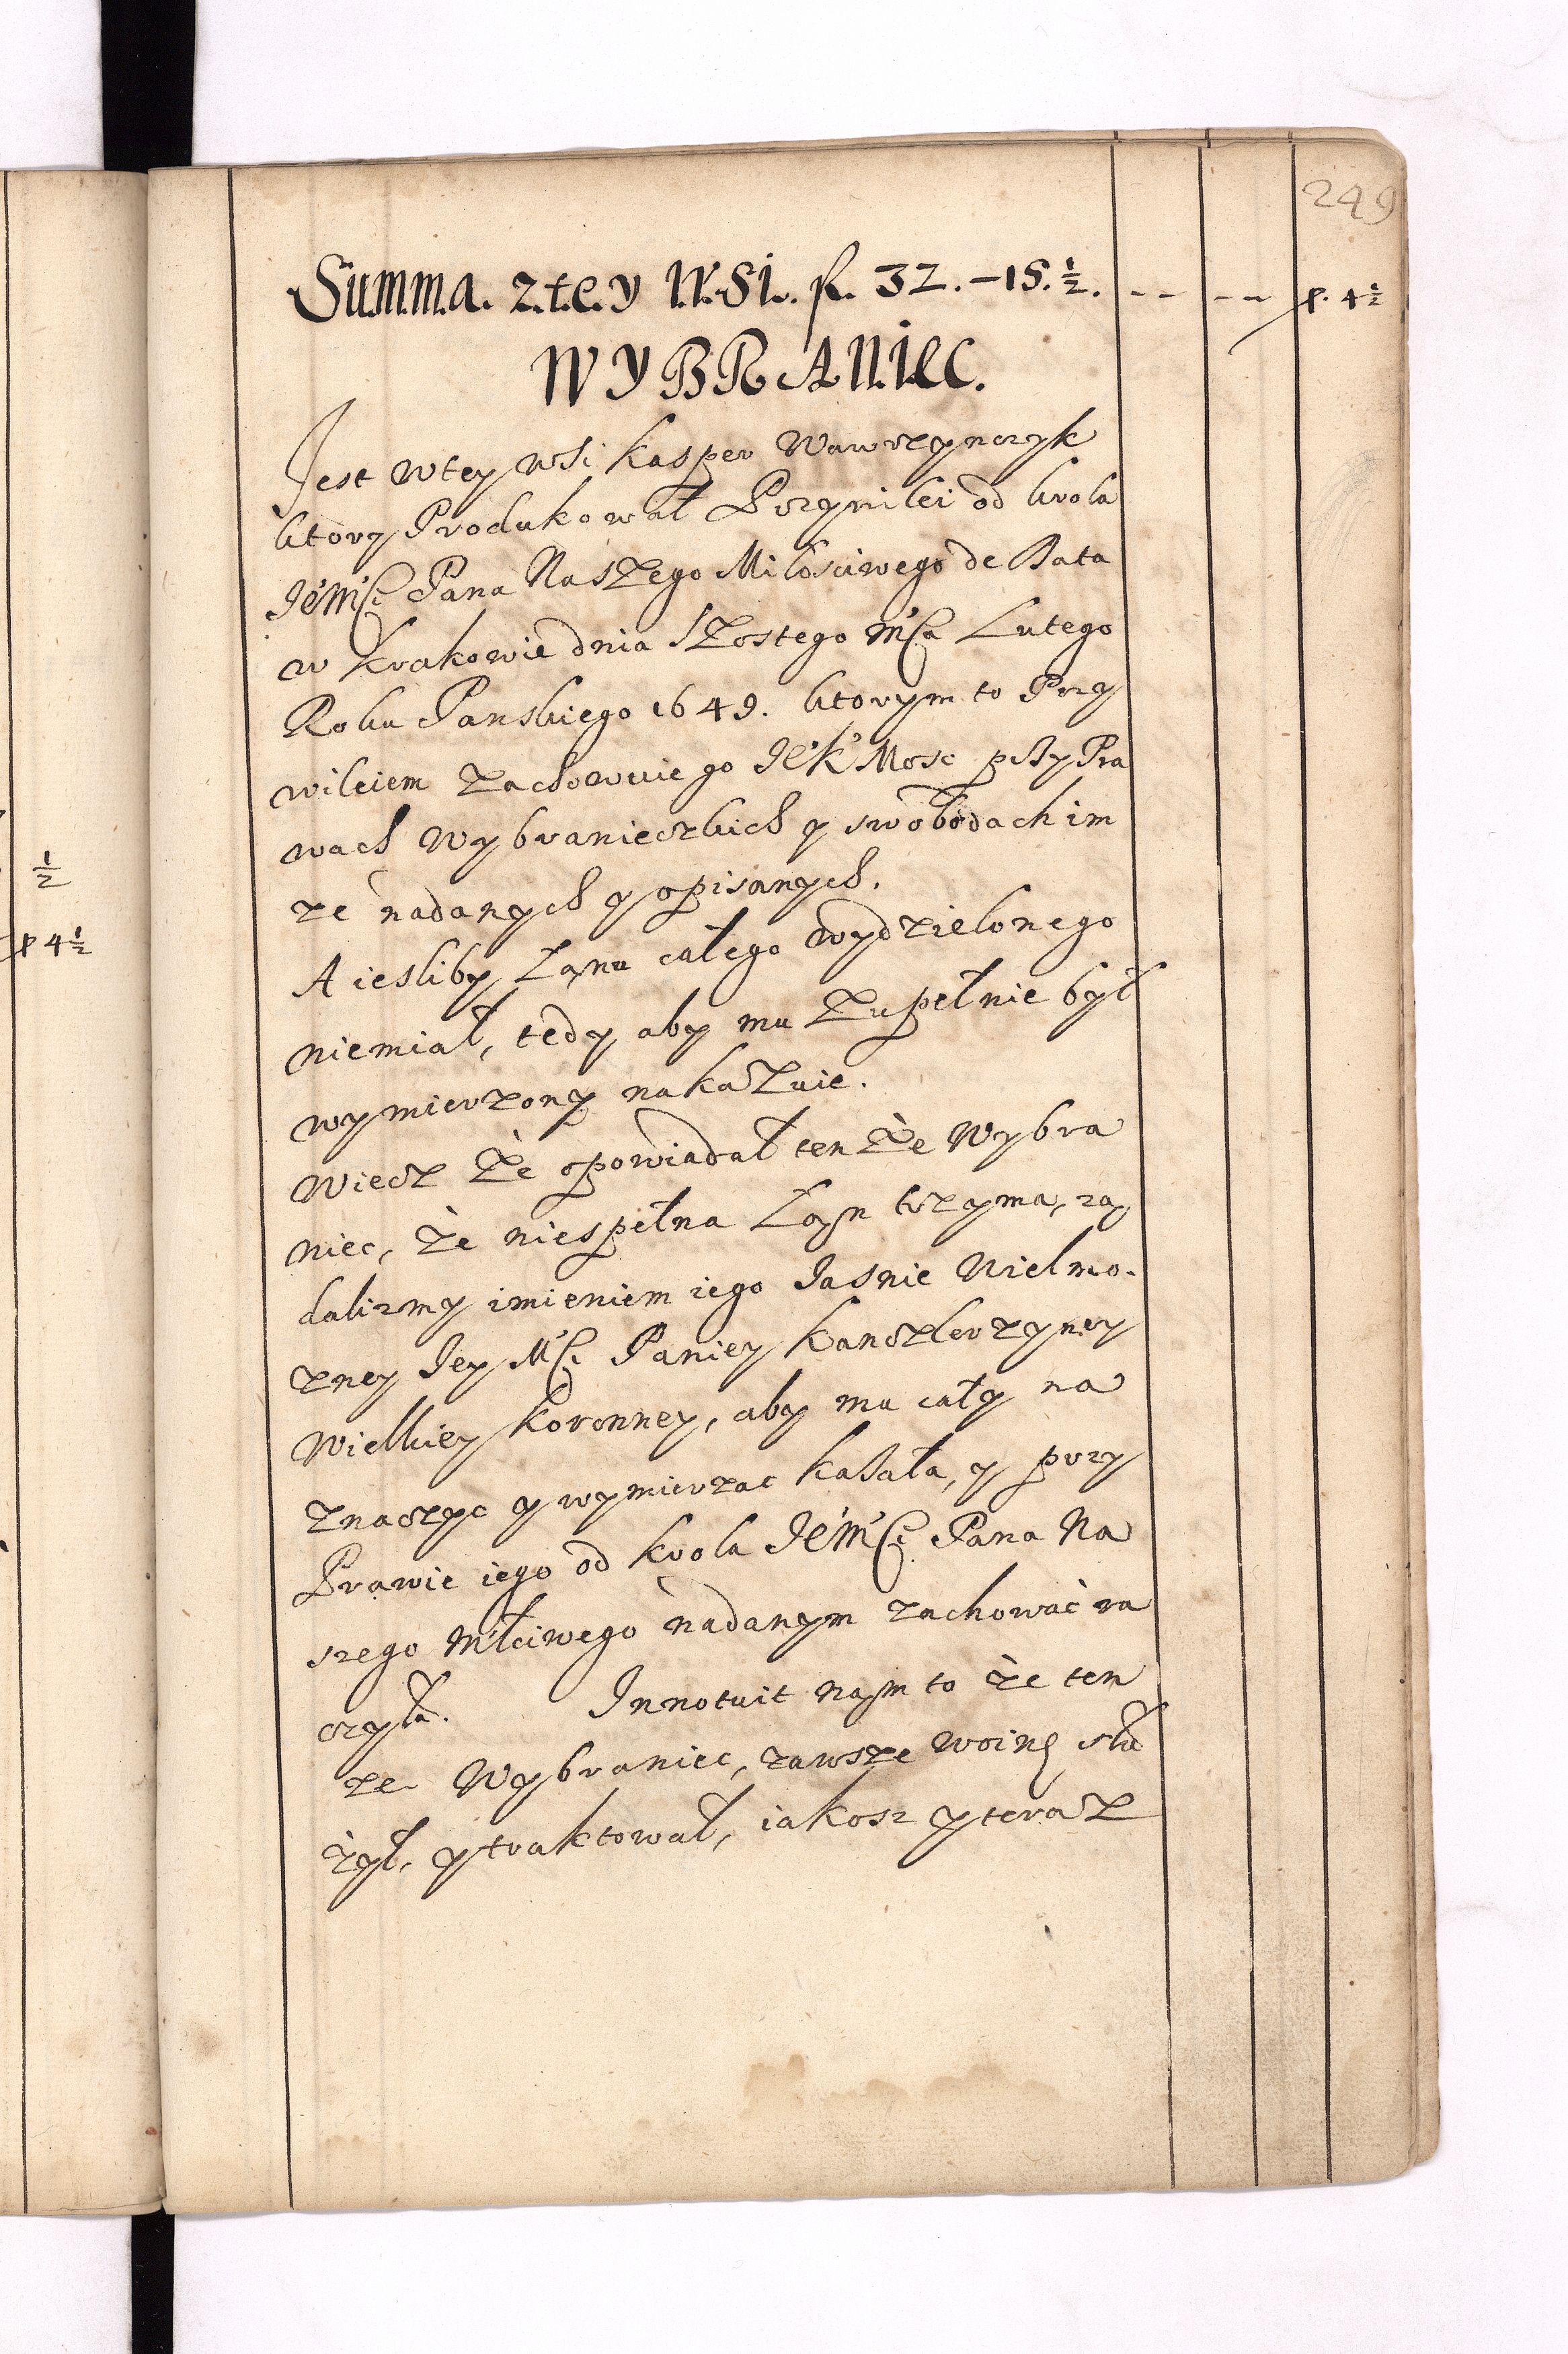 249
Summa. z tey Wsi. fl. 32. – 15. ½. -- -- fl. 4 ½
WYBRANIEC.
Jest w tey wsi Kasper Wawrzynczyk
ktory Produkował Przywilei od krola
JéMCi Pana Naszego Miłosciwego de Data
w Krakowie dnia Szostego MCa Lutego
Roku Panskiego 1649. ktorym to Przy
wileiem zachowuie go JéK Mosc przy Pra
wach Wybranieczkich y swobodach im
ze nadanych y opisanych.
A iesliby Łanu całego wydzielonego
niemiał, tedy aby mu zupełnie był
wymierzony nakazuie.
Wiecz że opowiadał tenże Wybra
niec, że niespełna Łan trzyma, za
dalizmy imieniem iego Jasnie Wielmo.
zney Jey MCi Paniey Kanczlerzyney
Wielkiey Koronney, aby mu cały na
znaczyc y wymierzac kazała, y przy
Prawie iego od Krola JéMCi Pana Na
szego Młciwego nadanym zachować ra
czyła. Innotuit nam to że ten
ze Wybraniec, zawsze woinę słu
żył, y traktował, iakosz y teraz
½
fl 4 ½